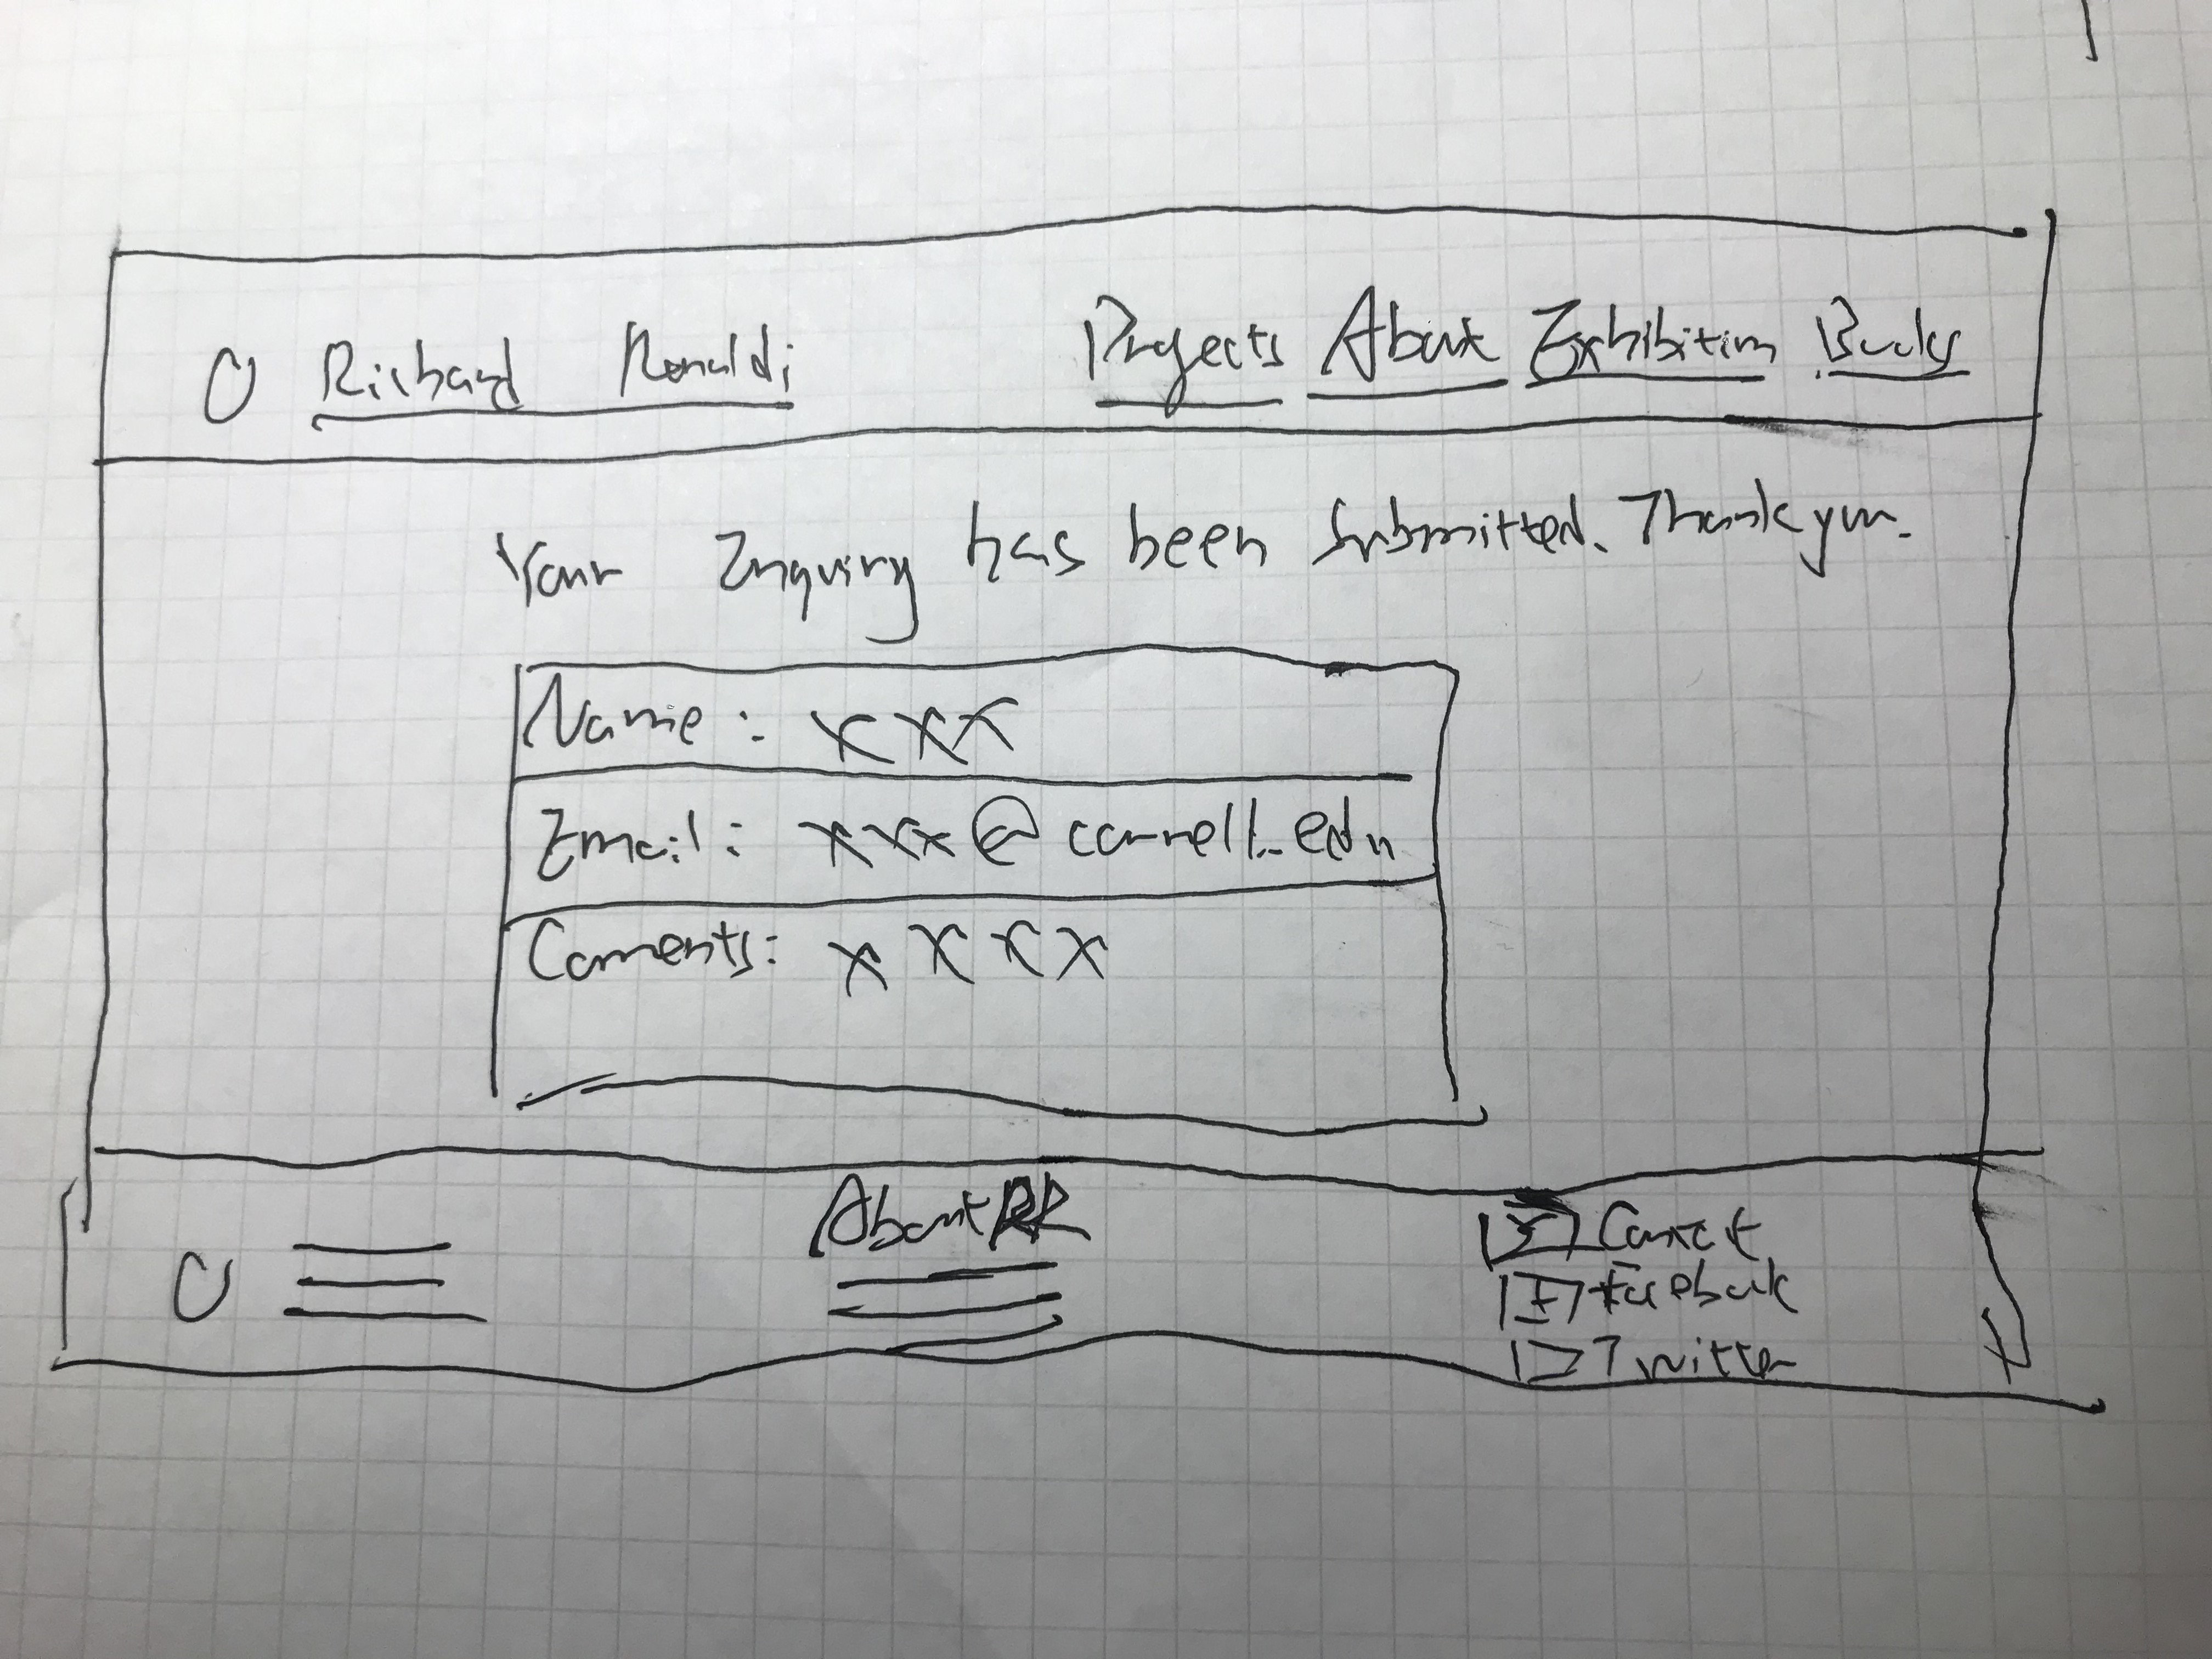 Richard Renaldi Projects About Exhibition Books
Your Inquiry has been Submitted. Thank you.
Name: xxx
Email: xxx@cornell.edu
Coments: xxxx
About RR
Contact
Facebook
Twitter